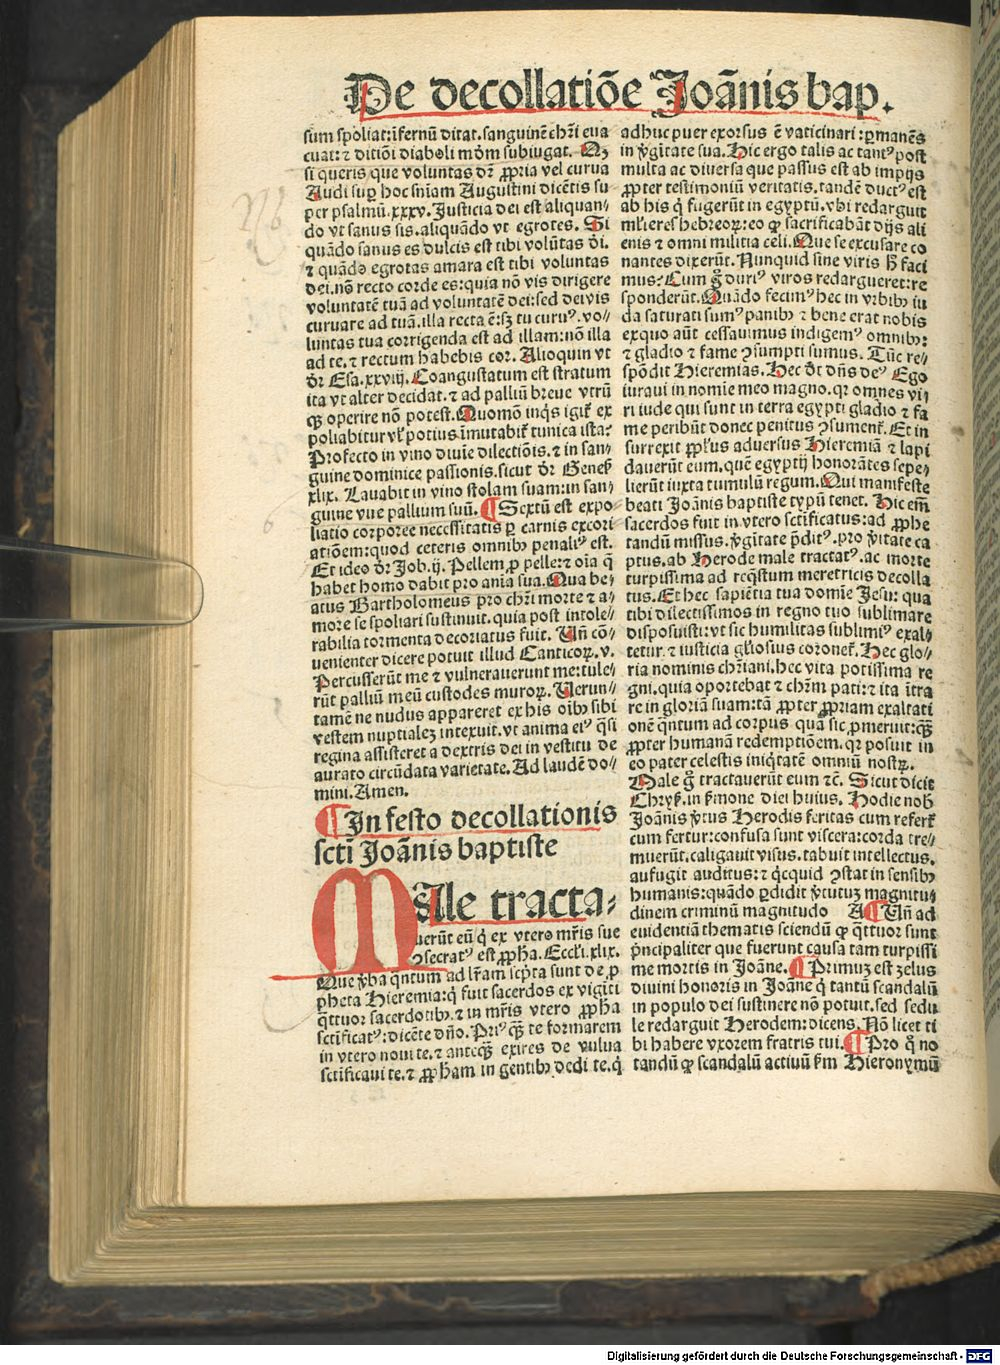 De decollatiōe Joānis bap.
sum spoliat: īfernū ditat. sanguinē chr̄i eua
cuat: ⁊ ditiōi diaboli mōm subiugat. Qꝫ
si queris que voluntas dr̄ ꝓpria vel curua
Audi suꝑ hoc sn̄iam Augustini dicētis su-
per psalmū. xxxv. Justicia dei est aliquan-
do vt sanus sis. aliquādo vt egrotes. Si
quādo sanus es dulcis est tibi volūtas d̄i.
⁊ quādo egrotas amara est tibi voluntas
dei. nō recto corde es: quia nō vis dirigere
voluntatē tuā ad voluntatē dei: sed dei vis
curuare ad tuā. illa recta ē: sꝫ tu curuꝰ. vo-
luntas tua corrigenda est ad illam: nō illa
ad te. ⁊ rectum habebis cor. Alioquin vt
dr̄ Esa. xxviij. Coangustatum est stratum
ita vt alter decidat. ⁊ ad palliū breue vtrū
qꝫ operire nō potest. Quomō inq̄s igit̄ ex
poliabitur vl̓ potius īmutabit̄ tunica ista?
Profecto in vino diuīe dilectiōis. ⁊ in san-
guine dominice passionis. sicut dr̄ Geneẜ
xlix. Lauabit in vino stolam suam: in san-
guine vue pallium suū. ¶ Sextū est expo-
liatio corporee necessitatis ꝑ carnis excori
atiōem: quod ceteris omnibꝰ penaliꝰ est.
Et ideo dr̄ Job. ij. Pellem ꝓ pelle: ⁊ oīa q̄
habet homo dabit pro anīa sua. Qua be-
atus Bartholomeus pro chr̄i morte ⁊ a-
more se spoliari sustinuit. quia post intole-
rabilia tormenta decoriatus fuit. Un̄ cō-
uenienter dicere potuit illud Canticoꝝ. v.
Percusserūt me ⁊ vulnerauerunt me: tule-
rūt palliū meū custodes muroꝝ. Uerun-
tamē ne nudus appareret ex his oībꝰ sibi
vestem nuptialeꝫ intexuit. vt anima eiꝰ q̄si
regina assisteret a dextris dei in vestitu de
aurato circūdata varietate. Ad laudē do-
mini. Amen.
¶ In festo decollationis
scti Joānis baptiste
MAle tracta-
uerūt eū q̓ ex vtero mr̄is sue
ɔsecratꝰ est ꝓpha. Eccl̓i. xlix.
Que v̓ba q̄ntum ad lr̄am scp̄ta sunt de ꝓ
pheta Hieremia: q̓ fuit sacerdos ex viginti
q̄ttuor sacerdotibꝰ. ⁊ in mr̄is vtero ꝓpha
sctificatꝰ: dicēte dn̄o. Priꝰ qꝫ te formarem
in vtero noui te. ⁊ anteqꝫ exires de vulua
sctificaui te. ⁊ ꝓpham in gentibꝰ dedi te. q̓
adhuc puer exorsus ē vaticinari: ꝑmanēs
in v̓gītate sua. Hic ergo talis ac tantꝰ post
multa ac diuersa que passus est ab impijs
ꝓpter testimoniū veritatis. tandē ductꝰ est
ab his q̓ fugerūt in egyptū. vbi redarguit
ml̓ieres hebreoꝝ: eo ꝙ sacrificabāt dijs ali
enis ⁊ omni militia celi. Que se excusare co
nantes dixerūt. Nunquid sine viris h̄ faci
mus? Cum g̊ duriꝰ viros redargueret: re
sponderūt. Quādo fecimꝰ hec in vrbibꝰ iu
da saturati sumꝰ panibꝰ ⁊ bene erat nobis
exquo aūt cessauimus indigemꝰ omnibꝰ:
⁊ gladio ⁊ fame ɔsumpti sumus. Tūc re-
spōdit Hieremias. Hec dt̄ dn̄s deꝰ Ego
iuraui in nomīe meo magno. qꝛ omnes vi-
ri iude qui sunt in terra egypti gladio ⁊ fa
me peribūt donec penitus ɔsument̄. Et in
surrexit ppl̓us aduersus Hieremiā ⁊ lapi
dauerūt eum. quē egyptij honorātes sepe-
lierūt iuxta tumulū regum. Qui manifeste
beati Joānis baptiste typū tenet. Hic em̄
sacerdos fuit in vtero sctificatus: ad ꝓphe
tandū missus. v̓gītate p̄ditꝰ. pro v̓itate ca
ptus. ab Herode male tractatꝰ. ac morte
turpissima ad req̄stum meretricis decolla
tus. Et hec sapiētia tua domīe Jesu: qua
tibi dilectissimos in regno tuo sublimare
disposuisti: vt sic humilitas sublimiꝰ exal-
tetur. ⁊ iusticia gl̓iosius coronet̄. Hec glo-
ria nominis chr̄iani. hec vita potissima re
gni. quia oportebat ⁊ chr̄m pati: ⁊ ita ītra
re in gloriā suam: tā ꝓpter ꝓpriam exaltati
onē q̄ntum ad corpus quā sic ꝓmeruit: qꝫ
ꝓpter humanā redemptiōem. qꝛ posuit in
eo pater celestis iniq̄tatē omniū nostꝝ.
Male g̊ tractauerūt eum ⁊c̄. Sicut dicit
Chryẜ. in s̓mone diei huius. Hodie nob̄
Joānis v̓tus Herodis feritas cum refert̄
cum fertur: confusa sunt viscera: corda tre-
muerūt. caligauit visus. tabuit intellectus.
aufugit auditus: ⁊ q̓cquid ɔstat in sensibꝰ
humanis: quādo ꝑdidit v̓tutuꝫ magnitu-
dinem criminū magnitudo A ¶ Un̄ ad
euidentiā thematis sciendū ꝙ q̄ttuor sunt
p̓ncipaliter que fuerunt causa tam turpissi
me mortis in Joāne. ¶ Primuꝫ est zelus
diuini honoris in Joāne q̓ tantū scandalū
in populo dei sustinere nō potuit. sed sedu
le redarguit Herodem: dicens. Nō licet ti
bi habere vxorem fratris tui. ¶ Pro q̊ no
tandū ꝙ scandalū actiuū s̓m Hieronymū
Digitalisierung gefördert durch die Deutsche Forschungsgemeinschaft - DFG